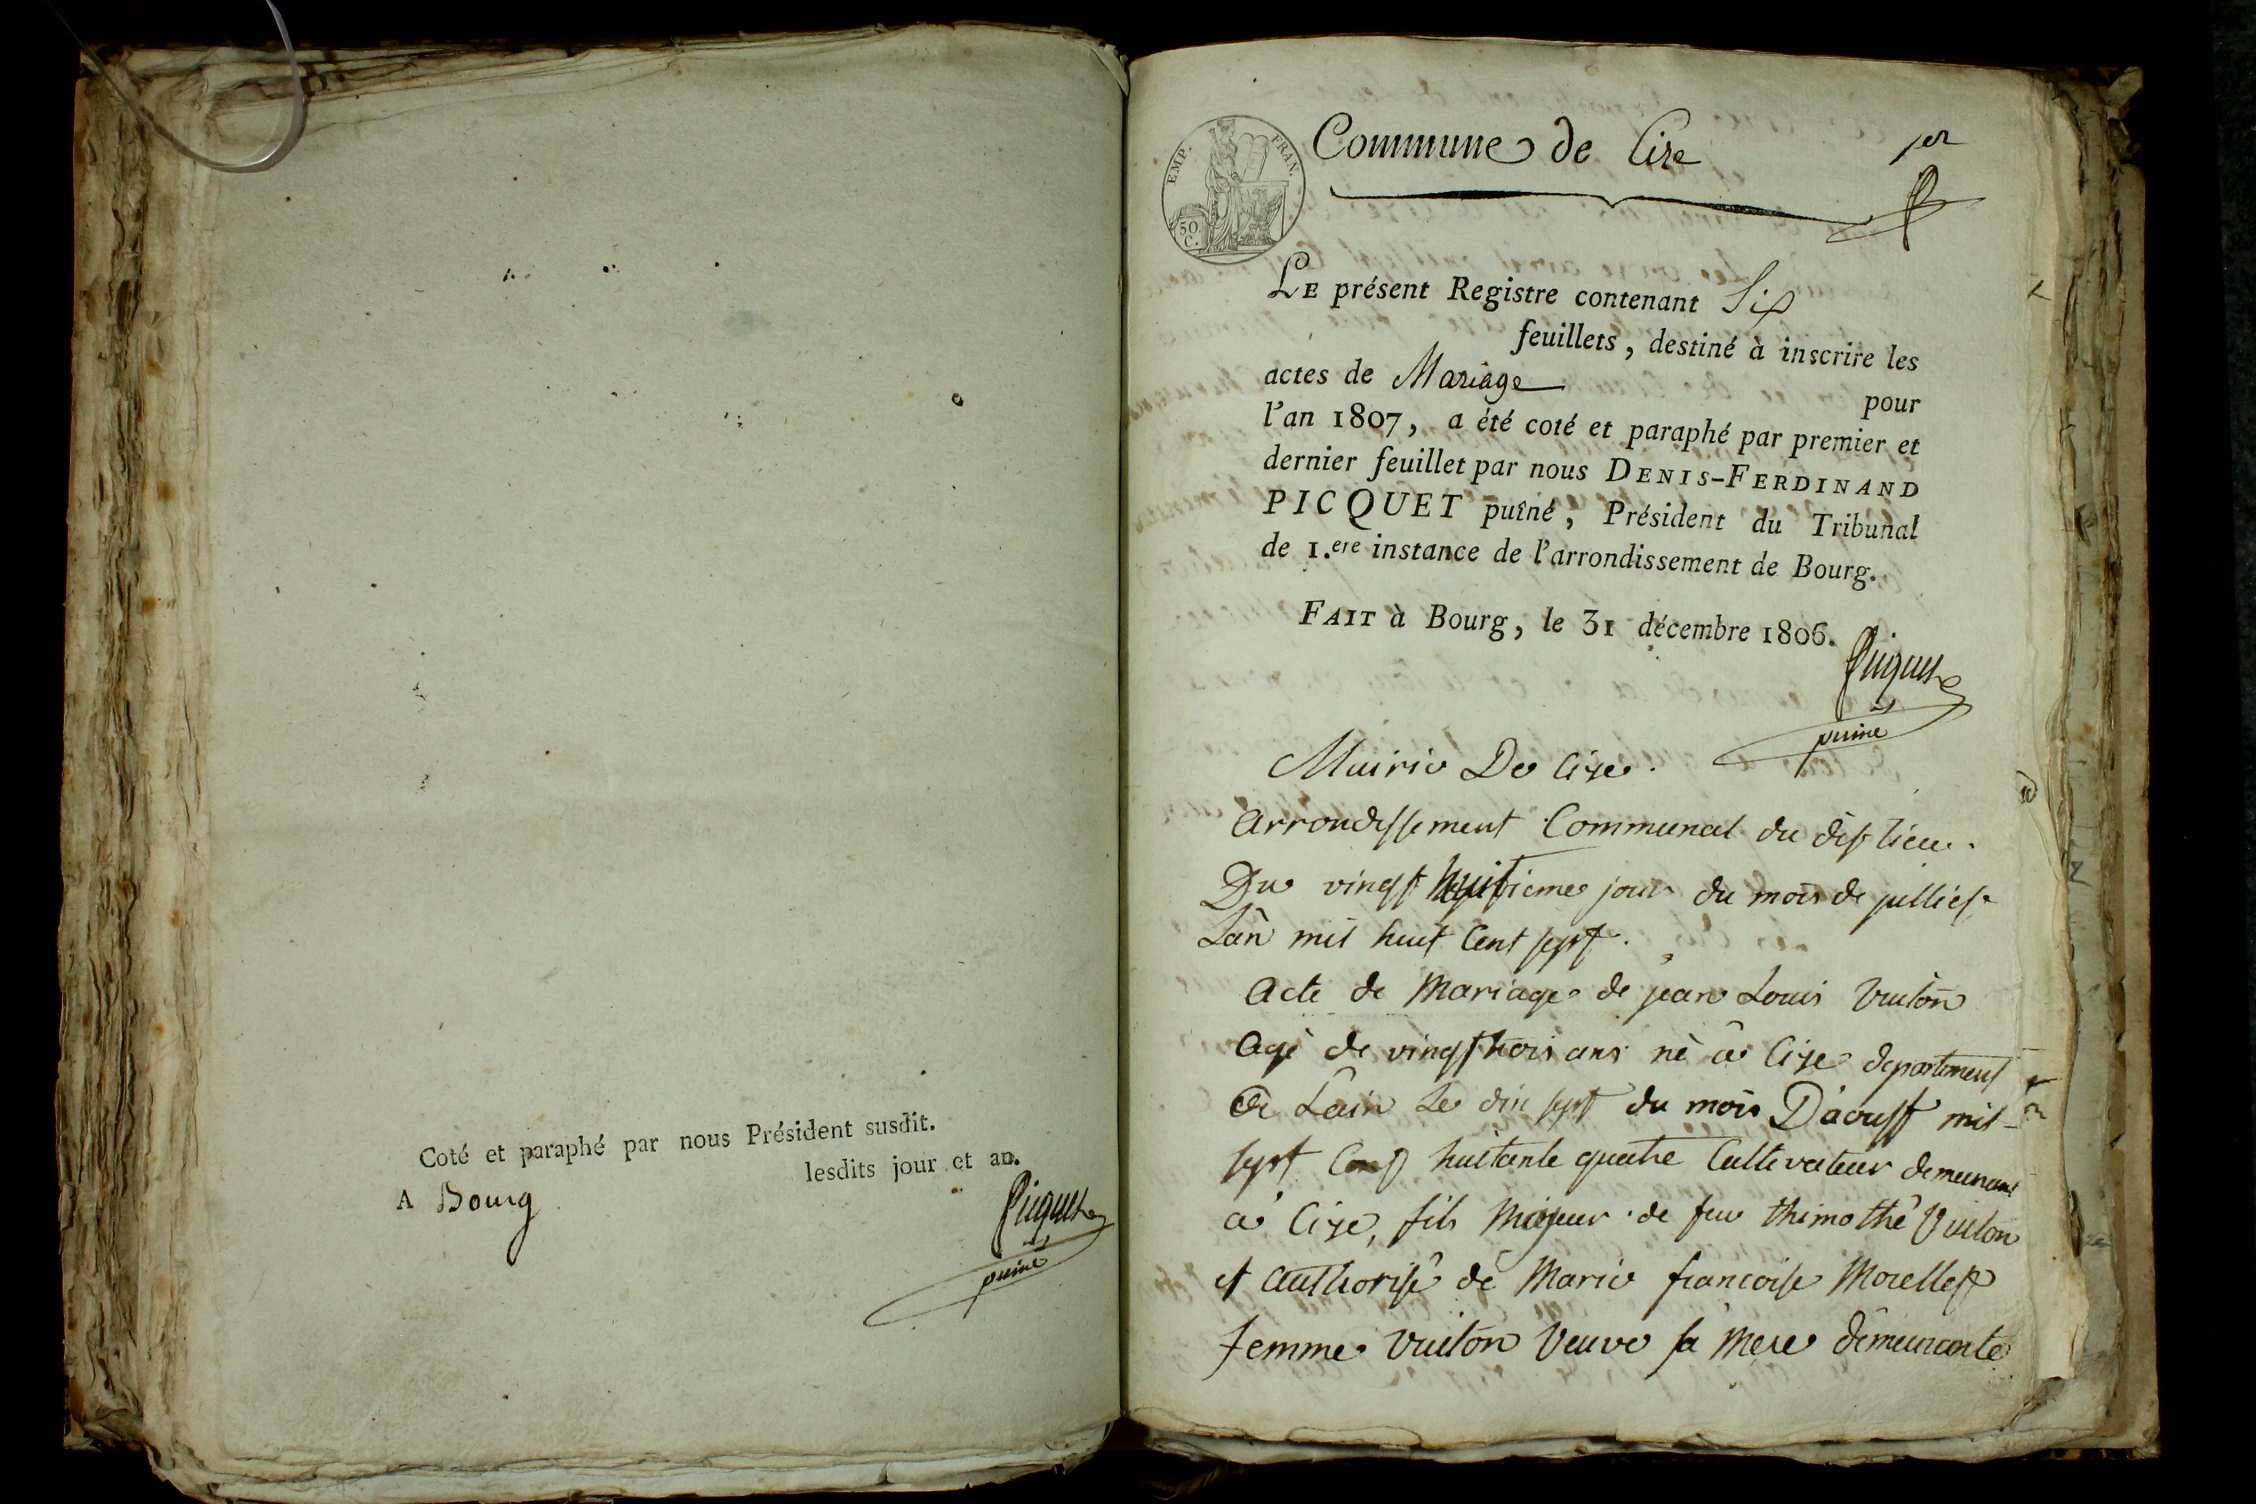 Coté et paraphé par nous Président susdit.
A Bourg lesdits jour et an.
Picquet
puiné
EMP. FRAN.
50 C.
Commune de Cize
1er
LE présent Registre contenant Six
feuillets, destiné à inscrire les
actes de Mariage pour
l'an 1807, a été coté et paraphé par premier et
dernier feuillet par nous DENIS-FERDINAND
PICQUET puîné, Président du Tribunal
de 1.ere instance de l'arrondissement de Bourg.
FAIT à Bourg, le 31 décembre 1806.
Picquet
puiné
Mairie De Cize.
arrondissement Communal du dist lieu.
Du vingst huitieme jour du mois de julliest
Lân mil huit Cent sept.
acte de Mariage de jean Louis Vuiton
agé de vingt trois ans né a Cize departement
de Lain Le dix sept du mois Daoust mil
sept Cent huitante quatre Cultivateur demeurant
a Cize, fils Majeur de feu thimothé Vuiton
et authorisé de Marie francoise Morellest
femme Vuiton Veuve sa Mere demeurante